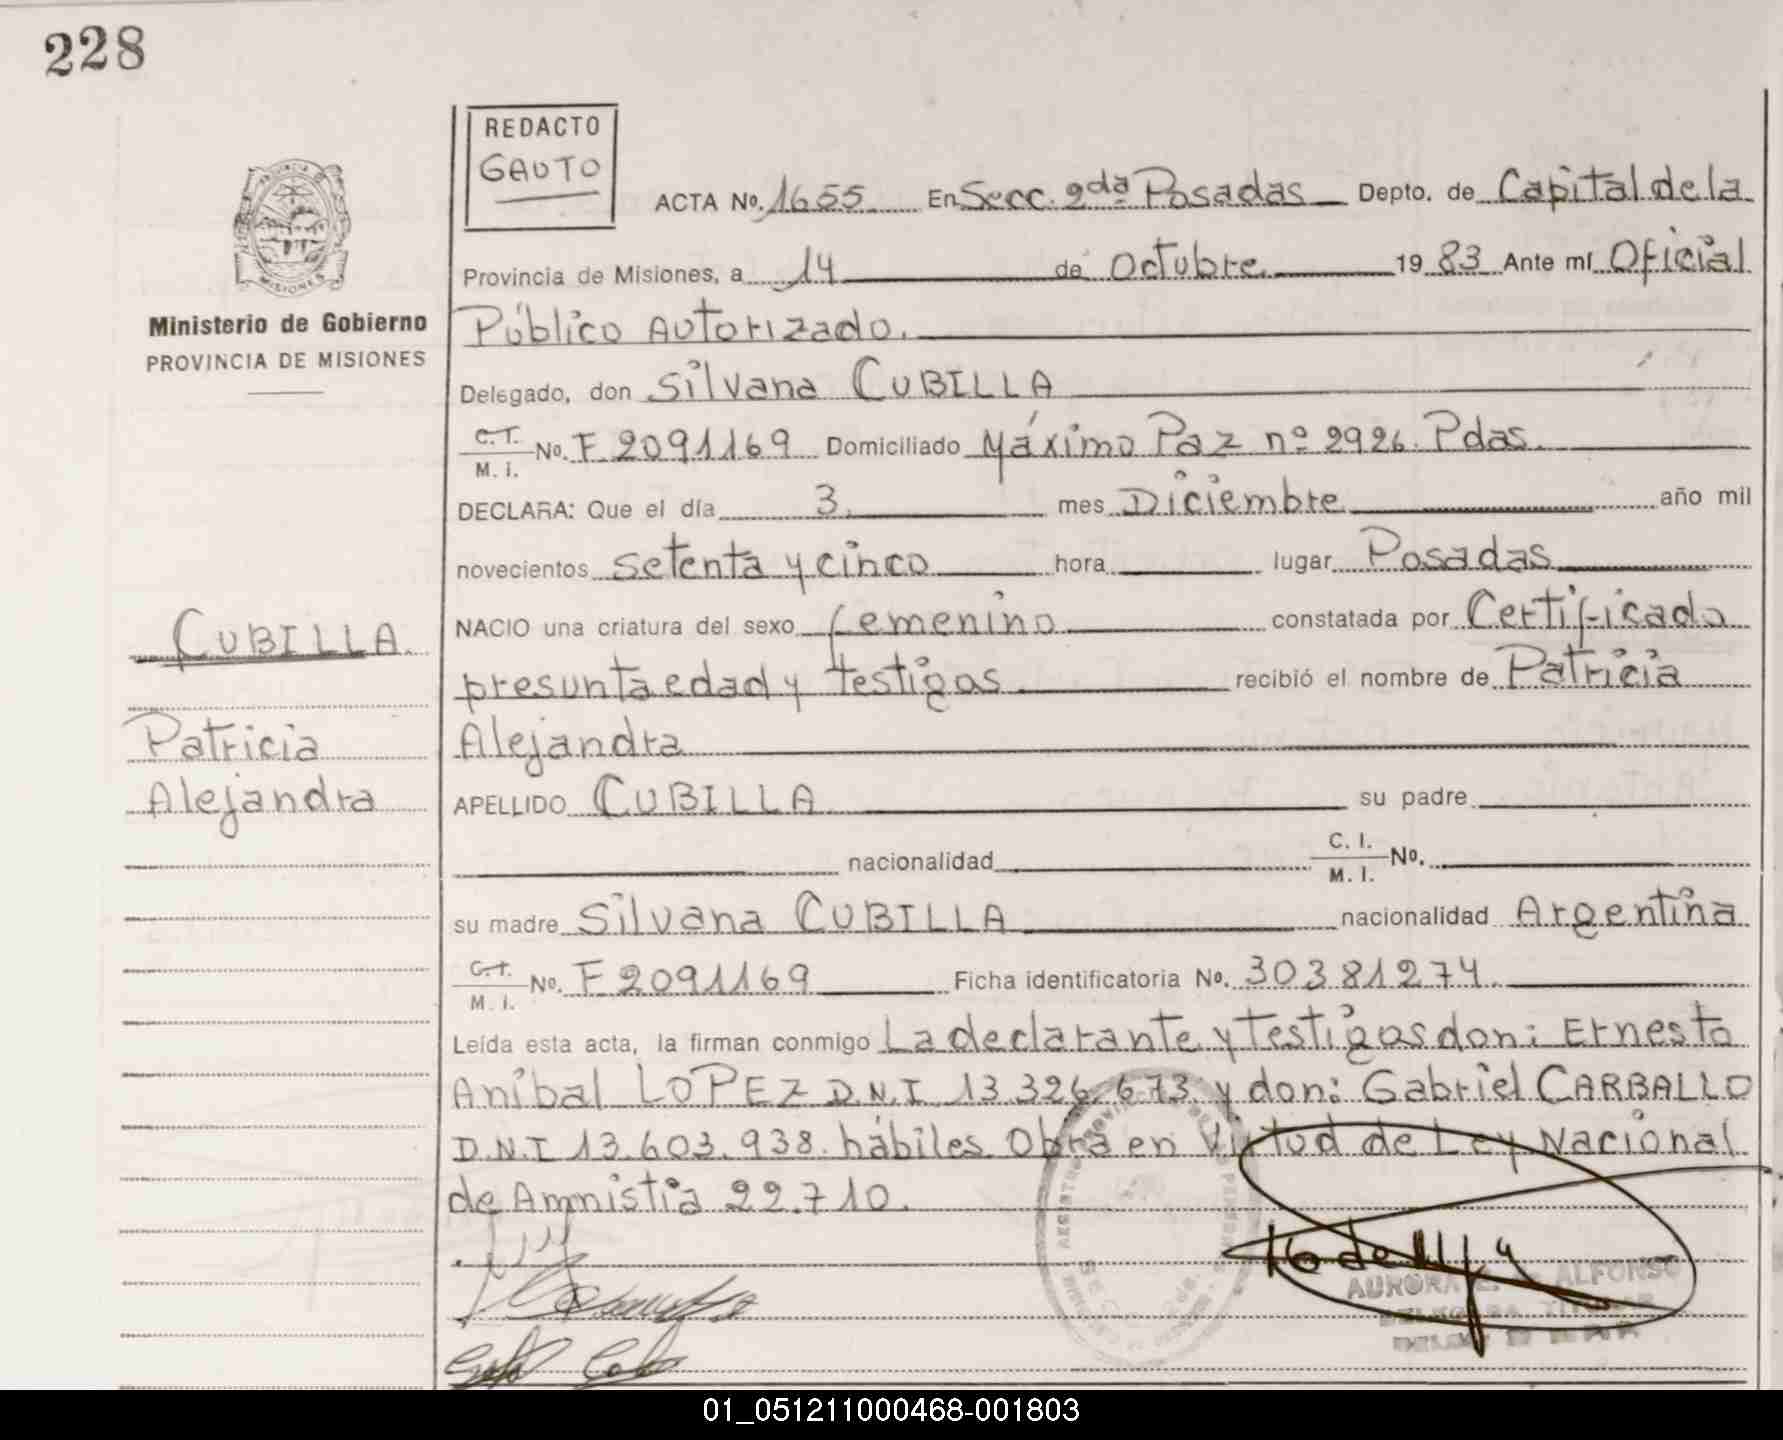 228
REDACTO
GAUTO
ACTA No. 1655 En Secc. 2da Posadas Depto. de Capital de la
Provincia de Misiones, a 14 de Octubre 19 83 Ante mí Oficial
Ministerio de Gobierno
PROVINCIA DE MISIONES
Público Autorizado.
Delegado, don Silvana CUBILLA
C.I. M. I. No. F 2091169 Domiciliado Máximo Paz nº 2926. Pdas.
DECLARA: Que el día 3. mes Diciembre año mil
novecientos setenta y cinco hora lugar Posadas
NACIO una criatura del sexo femenino constatada por Certificado
CUBILLA.
presunta edad y testigos recibió el nombre de Patricia
Patricia
Alejandra
Alejandra
APELLIDO CUBILLA su padre
nacionalidad C. I. M. I. No.
su madre Silvana CUBILLA nacionalidad Argentina
C.I. M. I. No. F 2091169 Ficha identificatoria No. 30381274.
Leída esta acta, la firman conmigo La declarante y testigos don: Ernesto
Aníbal LOPEZ D.N.I 13.326.673 y don: Gabriel CARBALLO
D.N.I 13.603.938. hábiles. Obra en Virtud de Ley Nacional
de Amnistia 22.710.
AURORA ALFONSO
01_051211000468-001803